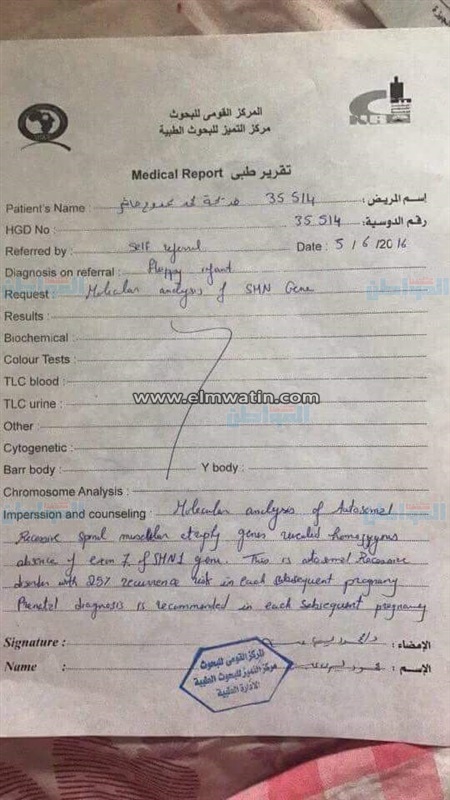 المركز القومى للبحوث
مركز التميز للبحوث الطبية
Medical Report تقرير طبى
Patient's Name : 35514 إسم المريض :
HGD No : 35514 رقم الدوسية :
Referred by : Self referral Date : 5 / 6 / 2016
Diagnosis on referral : Floppy infant
Request : Molecular analysis of SMN Gene
المواطن
Results :
Biochemical :
Colour Tests :
TLC blood :
www.elmwatin.com
TLC urine :
المواطن
Other :
Cytogenetic :
Barr body : Y body :
Chromosome Analysis :
Imperssion and counseling : Molecular analysis of Autosomal
Recessive Spinal muscular atrophy genes revealed homozygous
absence of exon 7 of SMN1 gene. This is autosomal Recessive
disorder with 25% recurrence risk in each subsequent pregnancy
Prenatal diagnosis is recommended in each subsequent pregnancy
Signature : الإمضاء :
Name : الإسم :
المركز القومى للبحوث
مركز التميز للبحوث الطبية